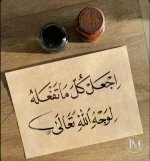 اِجْعَلْ كُلَّ مَا تَفْعَلُهُ
لِوَجْهِ اللهِ تَعَالَى